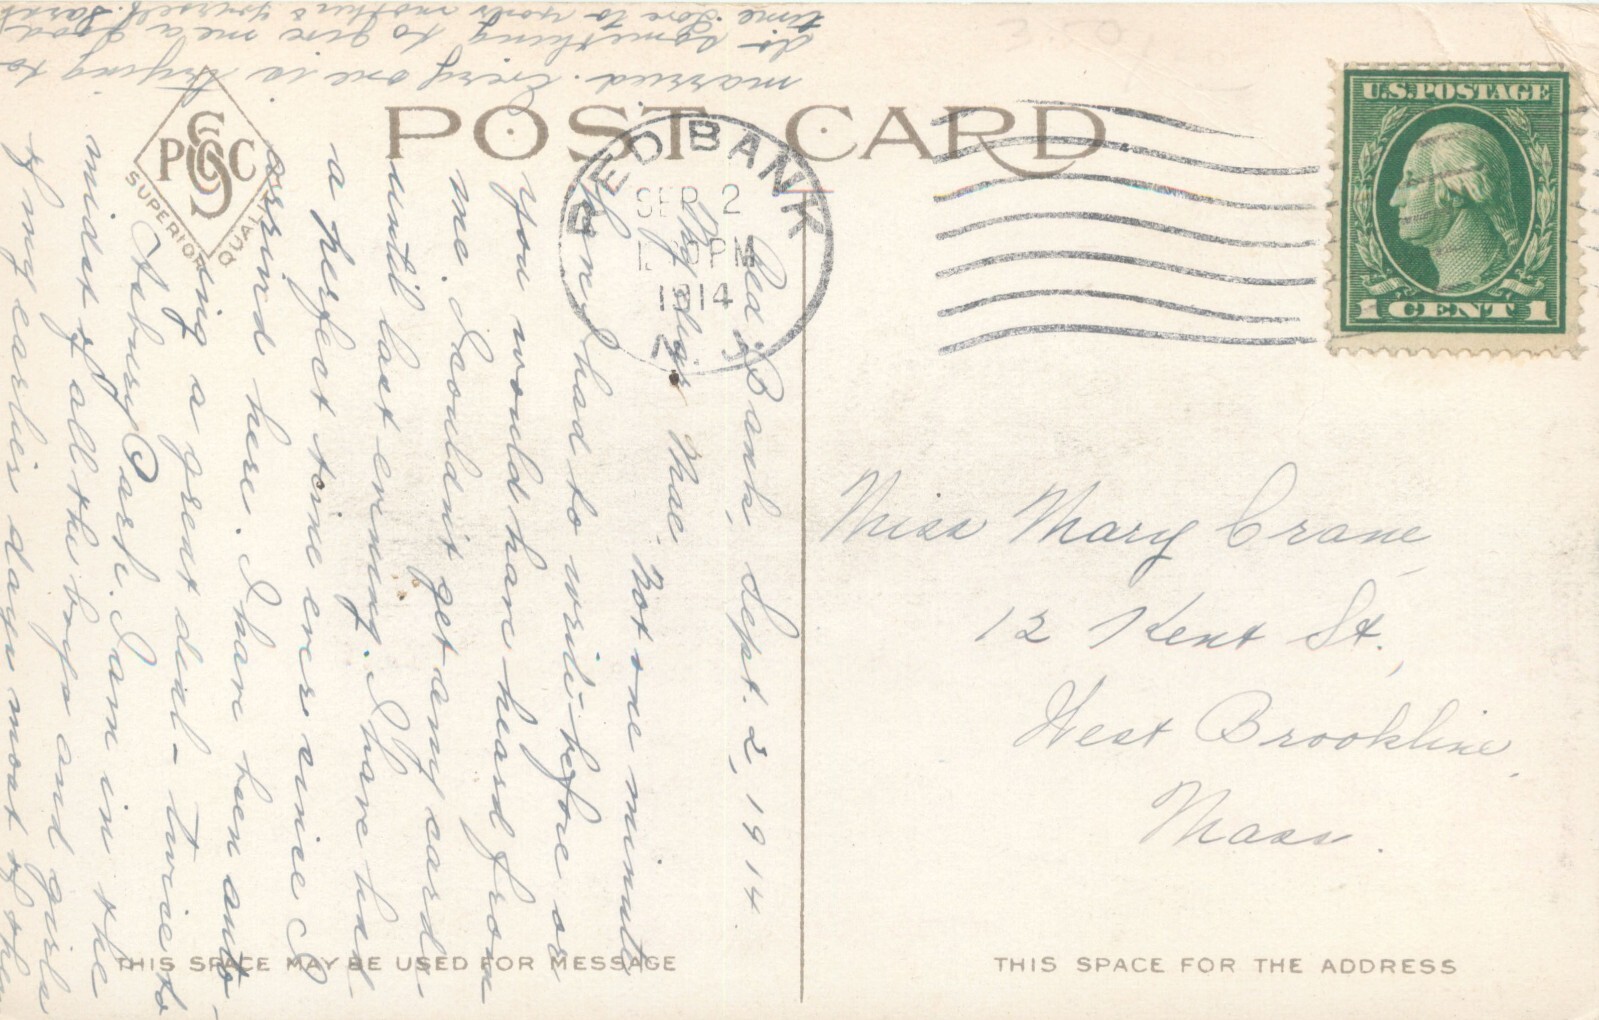 POST CARD
PSCC
SUPERIOR QUALITY
RED BANK
SEP 2
PM
1914
N.J.
U.S. POSTAGE
1 CENT 1
Red Bank, Sept. 2, 1914.
My dear Mae. Not one minute
have I had to write before or
you would have heard from
me. I couldn't get any cards
until last evening. I have had
a perfect time ever since I
arrived here. I have been auto-
ing a great deal - twice to
Asbury Park. I am in the
midst of all the boys and girls
of my earlier days most of them
married. Every one is trying to
do something to give me a good
time. Love to your mother & yourself. Sarah
Miss Mary Crane,
12 Kent St.,
West Brookline,
Mass.
THIS SPACE MAY BE USED FOR MESSAGE
THIS SPACE FOR THE ADDRESS